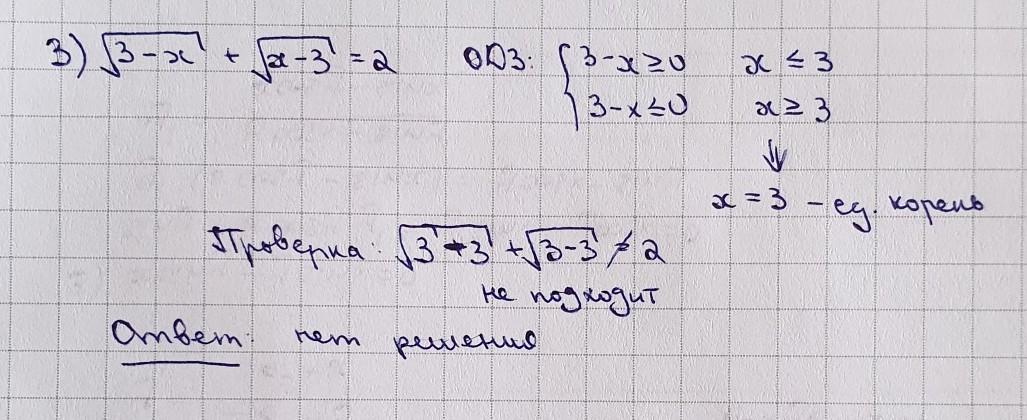 3) √(3-x) + √(x-3) = 2 ОДЗ: { 3-x≥0 x ≤ 3
3-x≤0 x ≥ 3
⇓
x = 3 - ед. корень
Проверка: √(3-3) + √(3-3) ≠ 2
не подходит
Ответ: нет решений